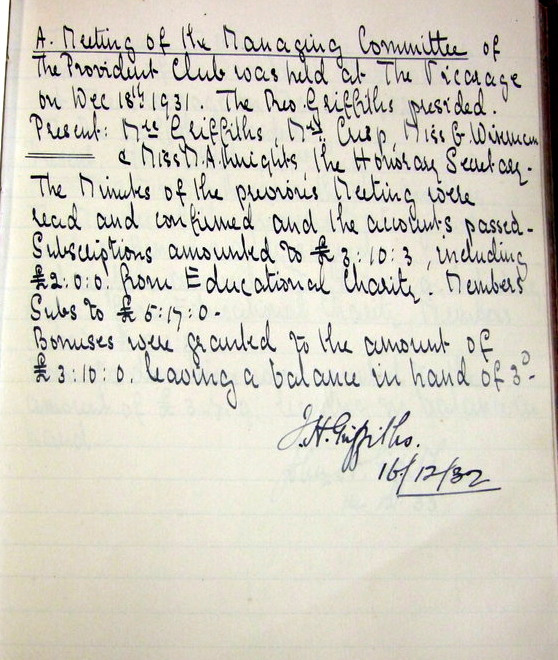 A. Meeting of the Managing Committee of
the Provident Club was held at The Vicarage
on Dec 18th 1931. The Rev. Griffiths presided.
Present: Mrs Griffiths, Mrs Cusp, Miss G.
& Miss M.A. Knights the Honorary Secretary-
The Minutes of the previous Meeting were
read and confirmed and the accounts passed-
Subscriptions amounted to £3:10:3, including
£2:0:0. from Educational Charity, Members
Subs to £5:17:0-
Bonuses were granted to the amount of
£3:10:0. leaving a balance in hand of 3D-
J.H. Griffiths.
16/12/32